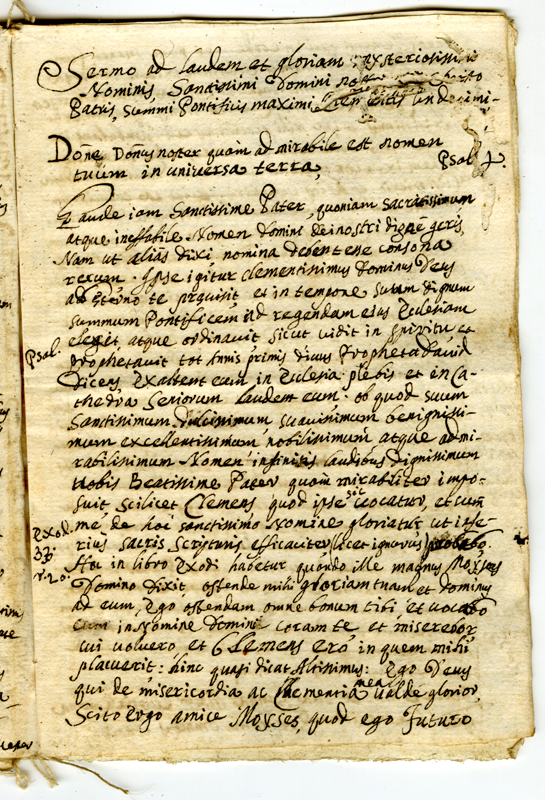 Sermo ad laudem et gloriam mysteriosissimi
Nominis Sanctissimi Domini
Patris, summi Pontificis maximi, Clementis undecimi.
Dom̃e Dom̃us noster quam admirabile est nomen
tuum in universa terra,
Psal.
Gaude iam Sanctissime Pater, quoniam sacratissimum
atque ineffabile Nomen domini dei nostri digne geris,
Nam ut aliàs dixi, nomina debent esse consona
rerum. Ipse igitur clementissimus dominus Deus
ab eterno te prquisit, et in tempore suum dignum
summum Pontificem ad regendam eius Ecclesiam
elegit, atque ordinavit, sicut vidit in spiritu et
Psal.
prophetavit tot annis primis divus Propheta David
dicens, Exaltent eum in Eclesia plebis et in Ca-
thedra Seniorum laudent eum. ob quod suum
Sanctissimum dulcissimum suavissimum benignissi-
mum excellentissimum nobilissimum atque admi-
rabilissimum Nomen infinitis laudibus dignissimum
uobis Beatissime Pater quam mirabiliter impo-
suit, scilicet Clemens quod ipse sic uocatur, et cum
me de hoc sanctissimo Nomine gloriatur ut infe-
Exod.
33.
v. 20.
rius sacris scripturis efficaciter (licet ignarus) probabo.
Ita in libro Exodi habetur quando ille magnus Moyses
Domino dixit, ostende mihi gloriam tuam et dominus
ad eum, Ego ostendam omne bonum tibi et uocabo
in Nomine domini coram te et miserebor
cui voluero, et Clemens ero in quem mihi
placuerit: hinc quasi dicat Altissimus: Ego Deus
qui de misericordia ac Clementia mea ualde glorior,
Scito Ergo amice Moyses, quod ego futuro